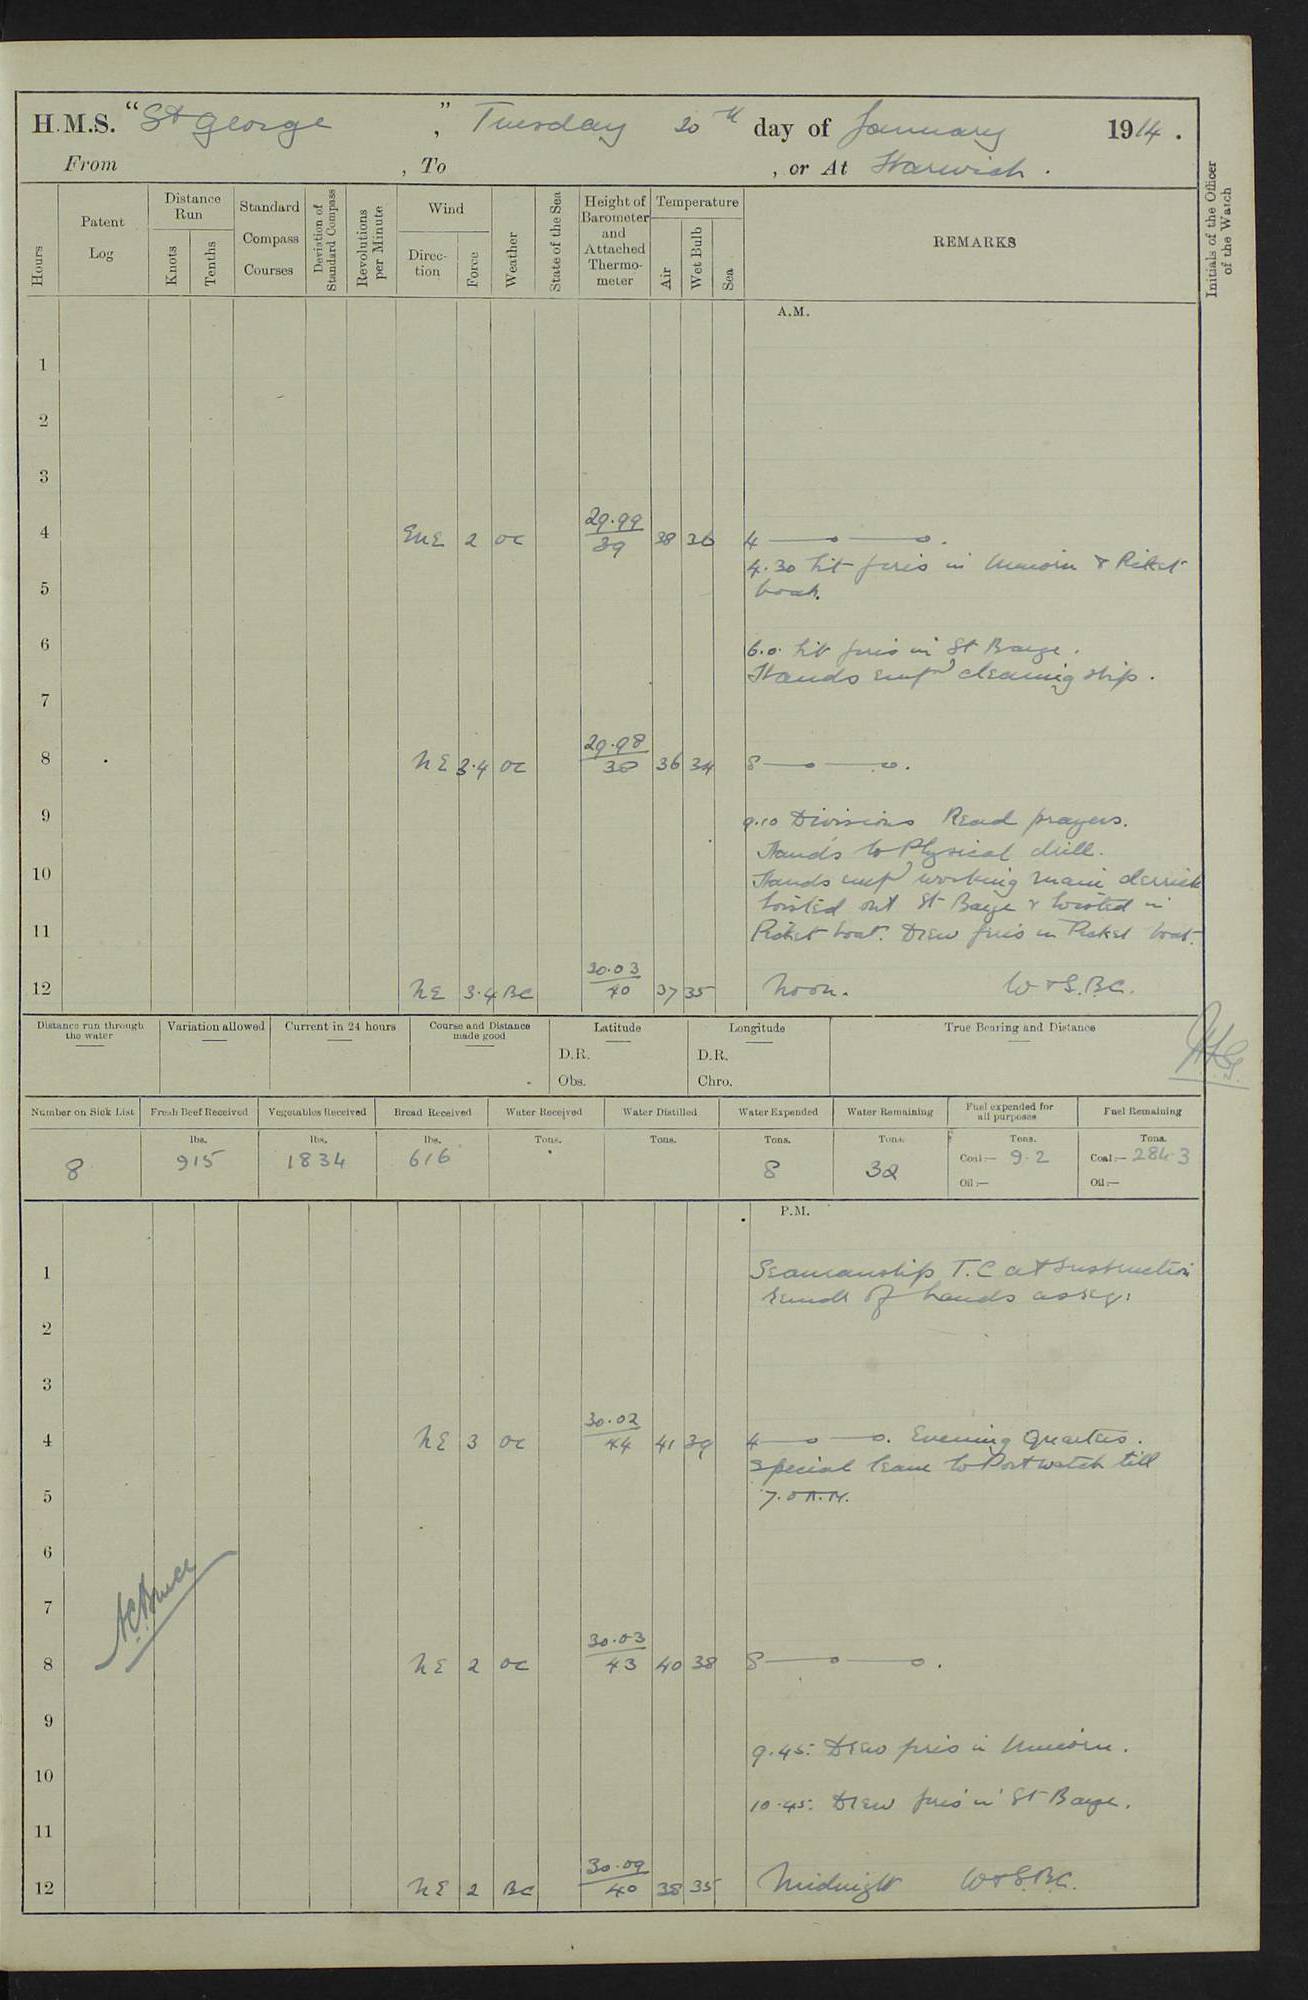 H.M.S. "St George", Tuesday 20th day of January 1914.
From , To , or At Harwich.
Hours
Patent Log
Distance Run
Knots
Tenths
Standard Compass Courses
Deviation of Standard Compass
Revolutions per Minute
Wind
Direction
Force
Weather
State of the Sea
Height of Barometer and Attached Thermometer
Temperature
Air
Wet Bulb
Sea
REMARKS
Initials of the Officer of the Watch
A.M.
1
2
3
4 ENE 2 oc 29.99 39 38 36 4 —o —o.
4.30 Lit fires in Unicorn & Picket
5 boat.
6 6.0. Lit fires in St Barge.
Hands empd cleaning ship.
7
8 NE 3.4 oc 29.98 38 36 34 8 —o —o.
9 9.10 Divisions Read prayers.
Hands to Physical drill.
10 Hands empd working main derrick
hoisted out St Barge & hoisted in
11 Picket boat. Drew fires in Picket boat.
12 NE 3.4 BC 30.03 40 37 35 Noon. W & S.B.C.
Distance run through the water
Variation allowed
Current in 24 hours
Course and Distance made good
Latitude
D.R.
Obs.
Longitude
D.R.
Chro.
True Bearing and Distance
Number on Sick List
Fresh Beef Received
Vegetables Received
Bread Received
Water Received
Water Distilled
Water Expended
Water Remaining
Fuel expended for all purposes
Fuel Remaining
lbs. lbs. lbs. Tons. Tons. Tons. Tons. Tons. Tons.
8 915 1834 616 8 32 Coal:— 9.2 Coal:— 284.3
Oil:— Oil:—
P.M.
1 Seamanship T.C at Instruction
remdr of hands as reqr:
2
3
4 NE 3 oc 30.02 44 41 39 4 —o —o. Evening Quarters.
Special leave to Port watch till
5 7.0 A.M.
6
7
A C Bruce
8 NE 2 oc 30.03 43 40 38 8 —o —o.
9
9.45: Drew fires in Unicorn.
10
10.45: Drew fires in St Barge.
11
12 NE 2 BC 30.09 40 38 35 Midnight W & S.B.C.